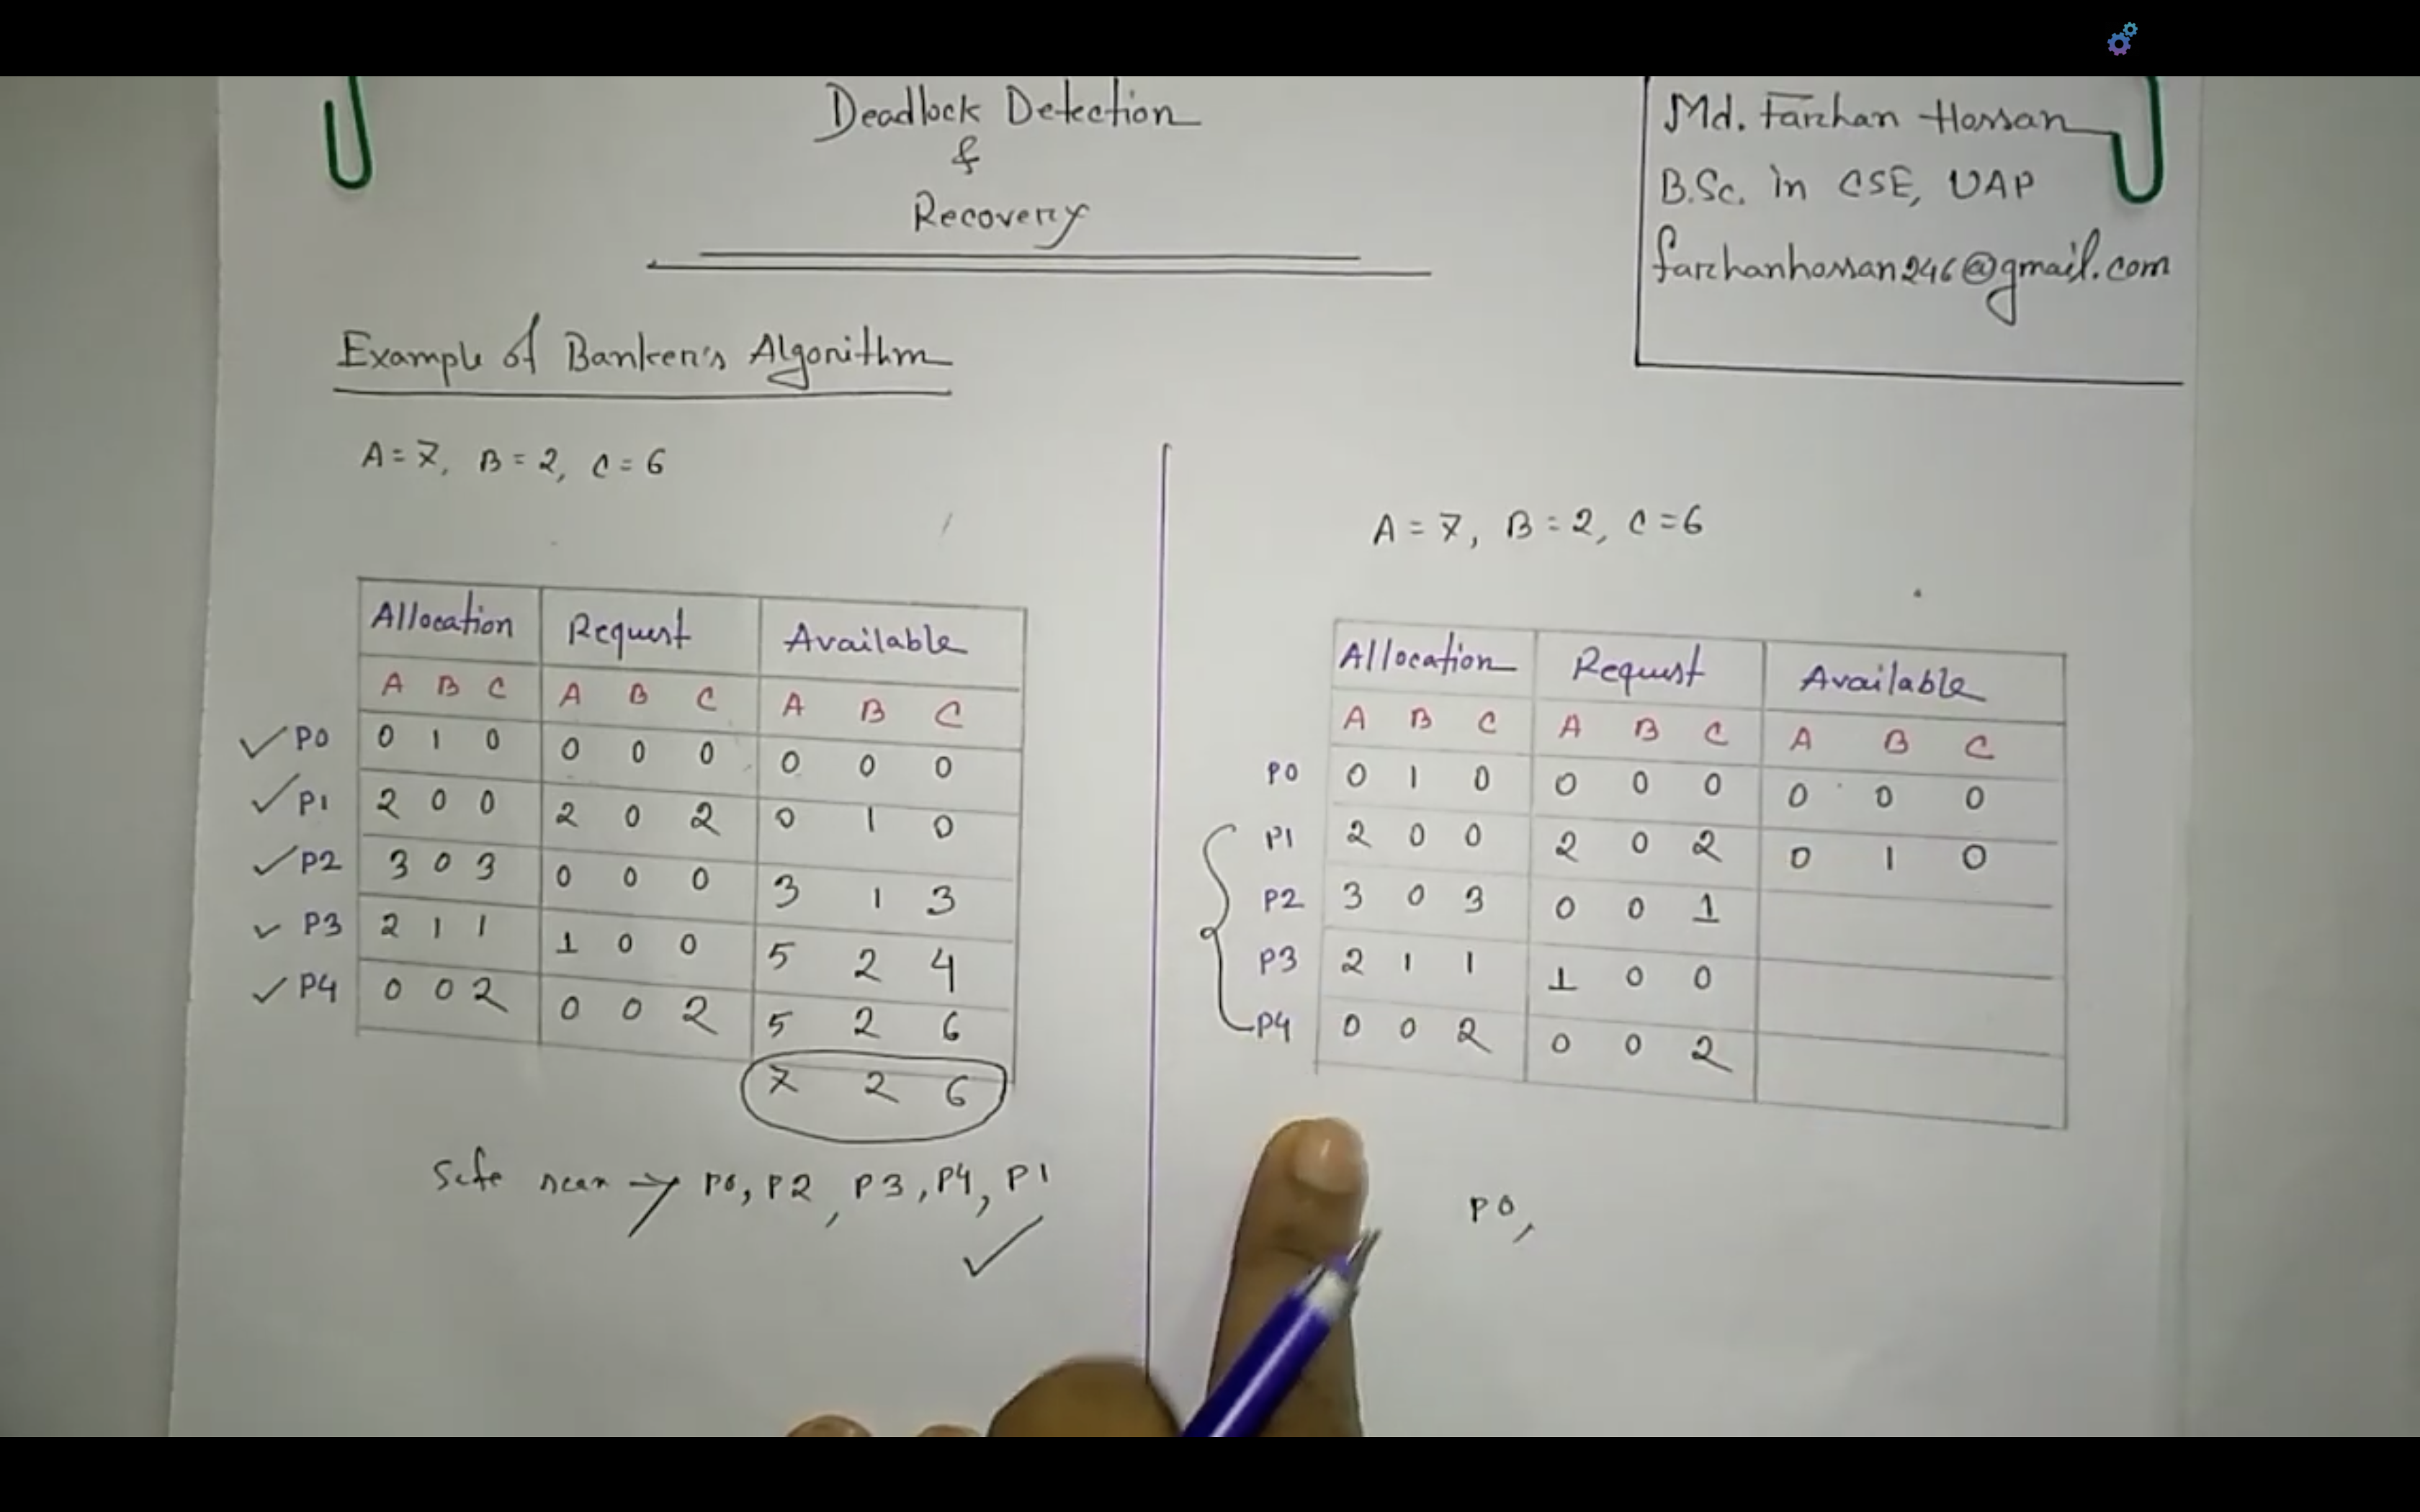 Deadlock Detection
&
Recovery
Md. Farhan Hossan
B.Sc. in CSE, UAP
farhanhossan246@gmail.com
Example of Banker's Algorithm
A = 7, B = 2, C = 6
Allocation Request Available
A B C A B C A B C
P0 0 1 0 0 0 0 0 0 0
P1 2 0 0 2 0 2 0 1 0
P2 3 0 3 0 0 0 3 1 3
P3 2 1 1 1 0 0 5 2 4
P4 0 0 2 0 0 2 5 2 6
7 2 6
Safe → P0, P2, P3, P4, P1
A = 7, B = 2, C = 6
Allocation Request Available
A B C A B C A B C
P0 0 1 0 0 0 0 0 0 0
P1 2 0 0 2 0 2 0 1 0
P2 3 0 3 0 0 1
P3 2 1 1 1 0 0
P4 0 0 2 0 0 2
P0,